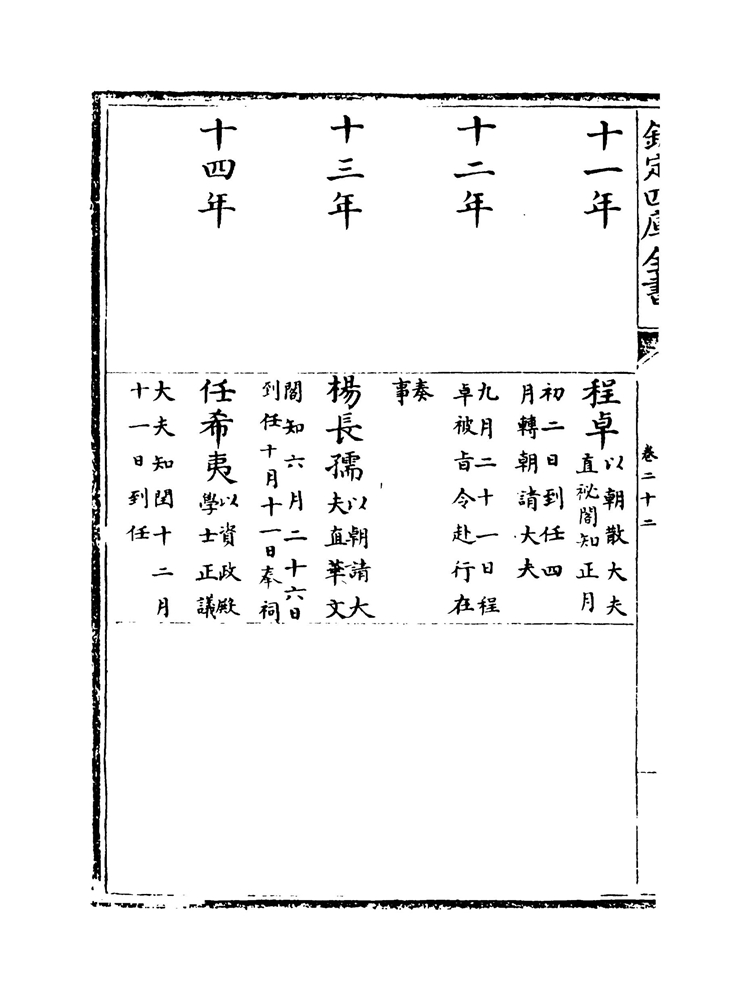 欽定四庫全書
卷二十二
十一年
程卓以朝散大夫
直祕閣知正月
初二日到任四
月轉朝請大夫
十二年
九月二十一日程
卓被旨令赴行在
奏
事
十三年
楊長孺以朝請大
夫直華文
閣知六月二十六日
到任十月十一日奉祠
十四年
任希夷以資政殿
學士正議
大夫知閏十二月
十一日到任